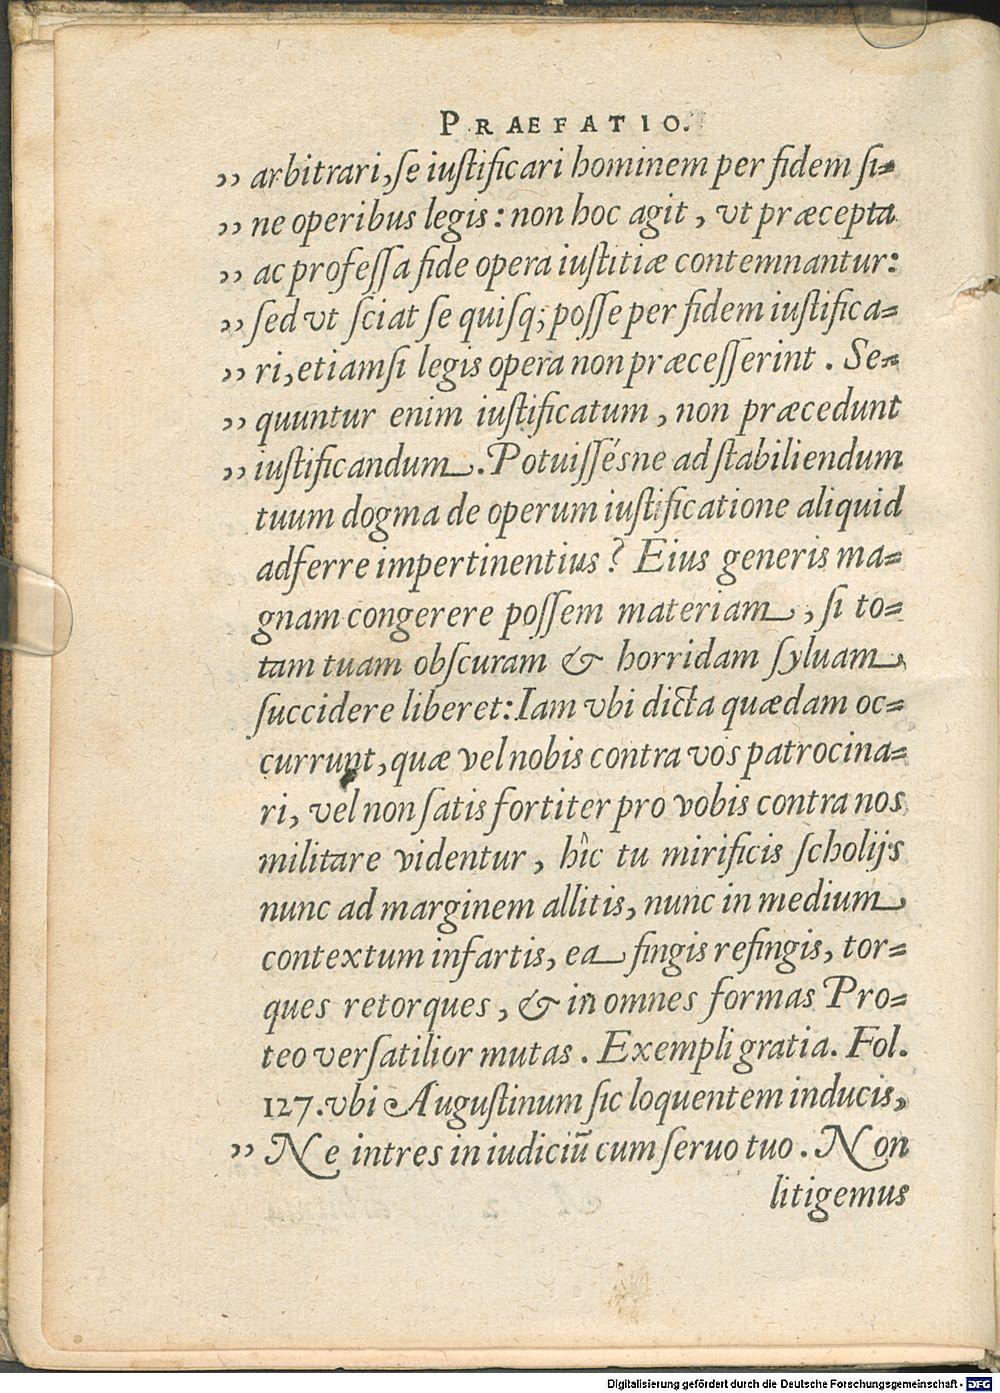 PRAEFATIO.
„ arbitrari, se iustificari hominem per fidem si=
„ ne operibus legis: non hoc agit, vt præcepta
„ ac professa fide opera iustitiæ contemnantur:
„ sed vt sciat se quisq; posse per fidem iustifica=
„ ri, etiamsi legis opera non præcesserint. Se=
„ quuntur enim iustificatum, non præcedunt
„ iustificandum. Potuissésne ad stabiliendum
tuum dogma de operum iustificatione aliquid
adferre impertinentius? Eius generis ma=
gnam congerere possem materiam, si to=
tam tuam obscuram & horridam syluam
succidere liberet: Iam vbi dicta quædam oc=
currunt, quæ vel nobis contra vos patrocina=
ri, vel non satis fortiter pro vobis contra nos
militare videntur, hîc tu mirificis scholijs
nunc ad marginem allitis, nunc in medium
contextum infartis, ea fingis refingis, tor=
ques retorques, & in omnes formas Pro=
teo versatilior mutas. Exempli gratia. Fol.
127. vbi Augustinum sic loquentem inducis,
„ Ne intres in iudiciū cum seruo tuo. Non
litigemus
Digitalisierung gefördert durch die Deutsche Forschungsgemeinschaft - DFG